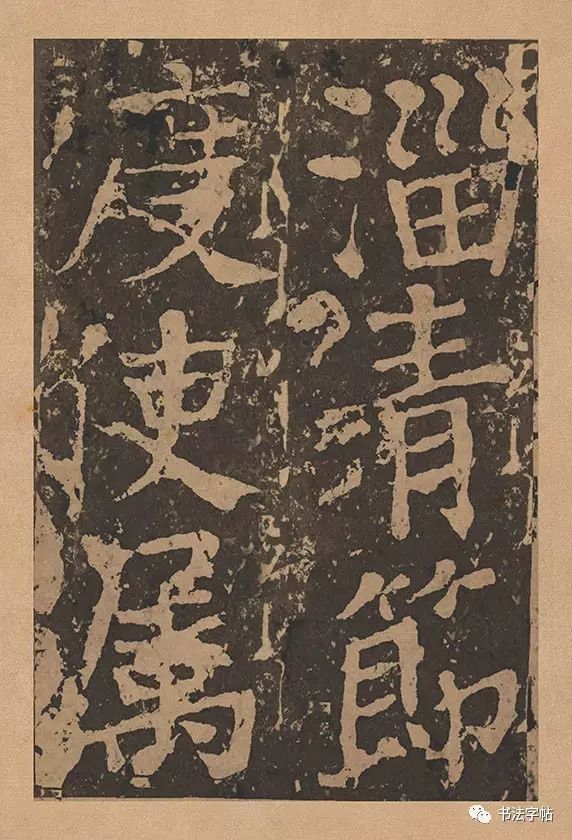 淄青節
度使属
书法字帖